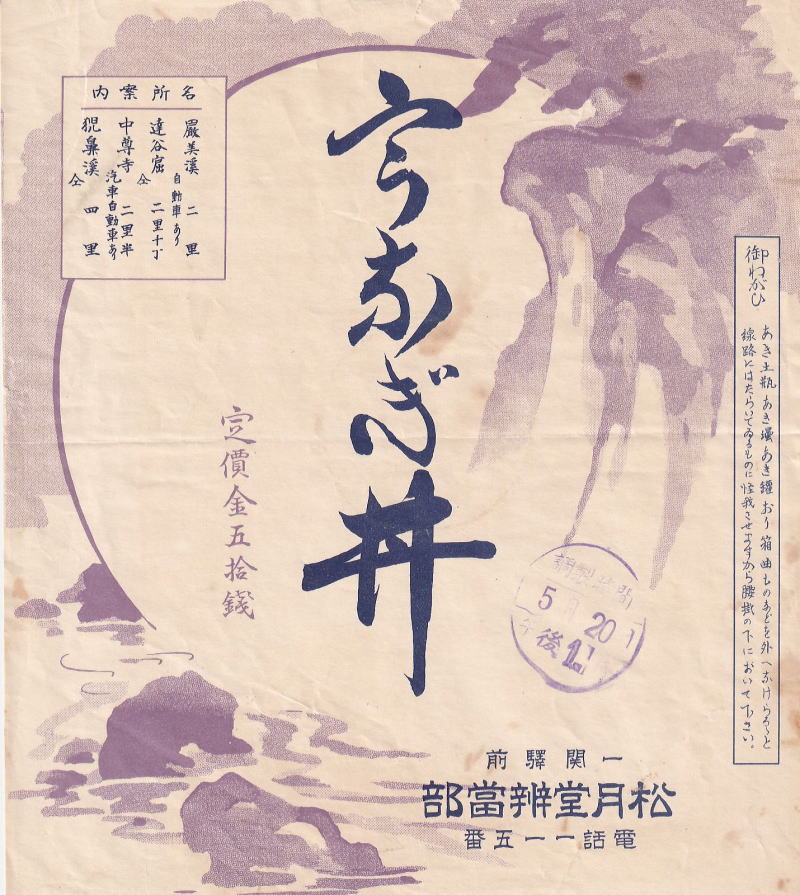 うなぎ丼
定價金五拾錢
名所案内
嚴美溪 自動車あり 二里
達谷窟 仝 二里十丁
中尊寺 汽車自動車あり 二里半
猊鼻溪 仝 四里
御ねがひ
あき土瓶あき壜あき罐おり箱曲ものなどを外へなけらるゝと
線路にはたらいてゐるものに怪我させますから腰掛の下において下さい。
調製時間
5月20日
午後11
一關驛前
松月堂辨當部
電話一一五番